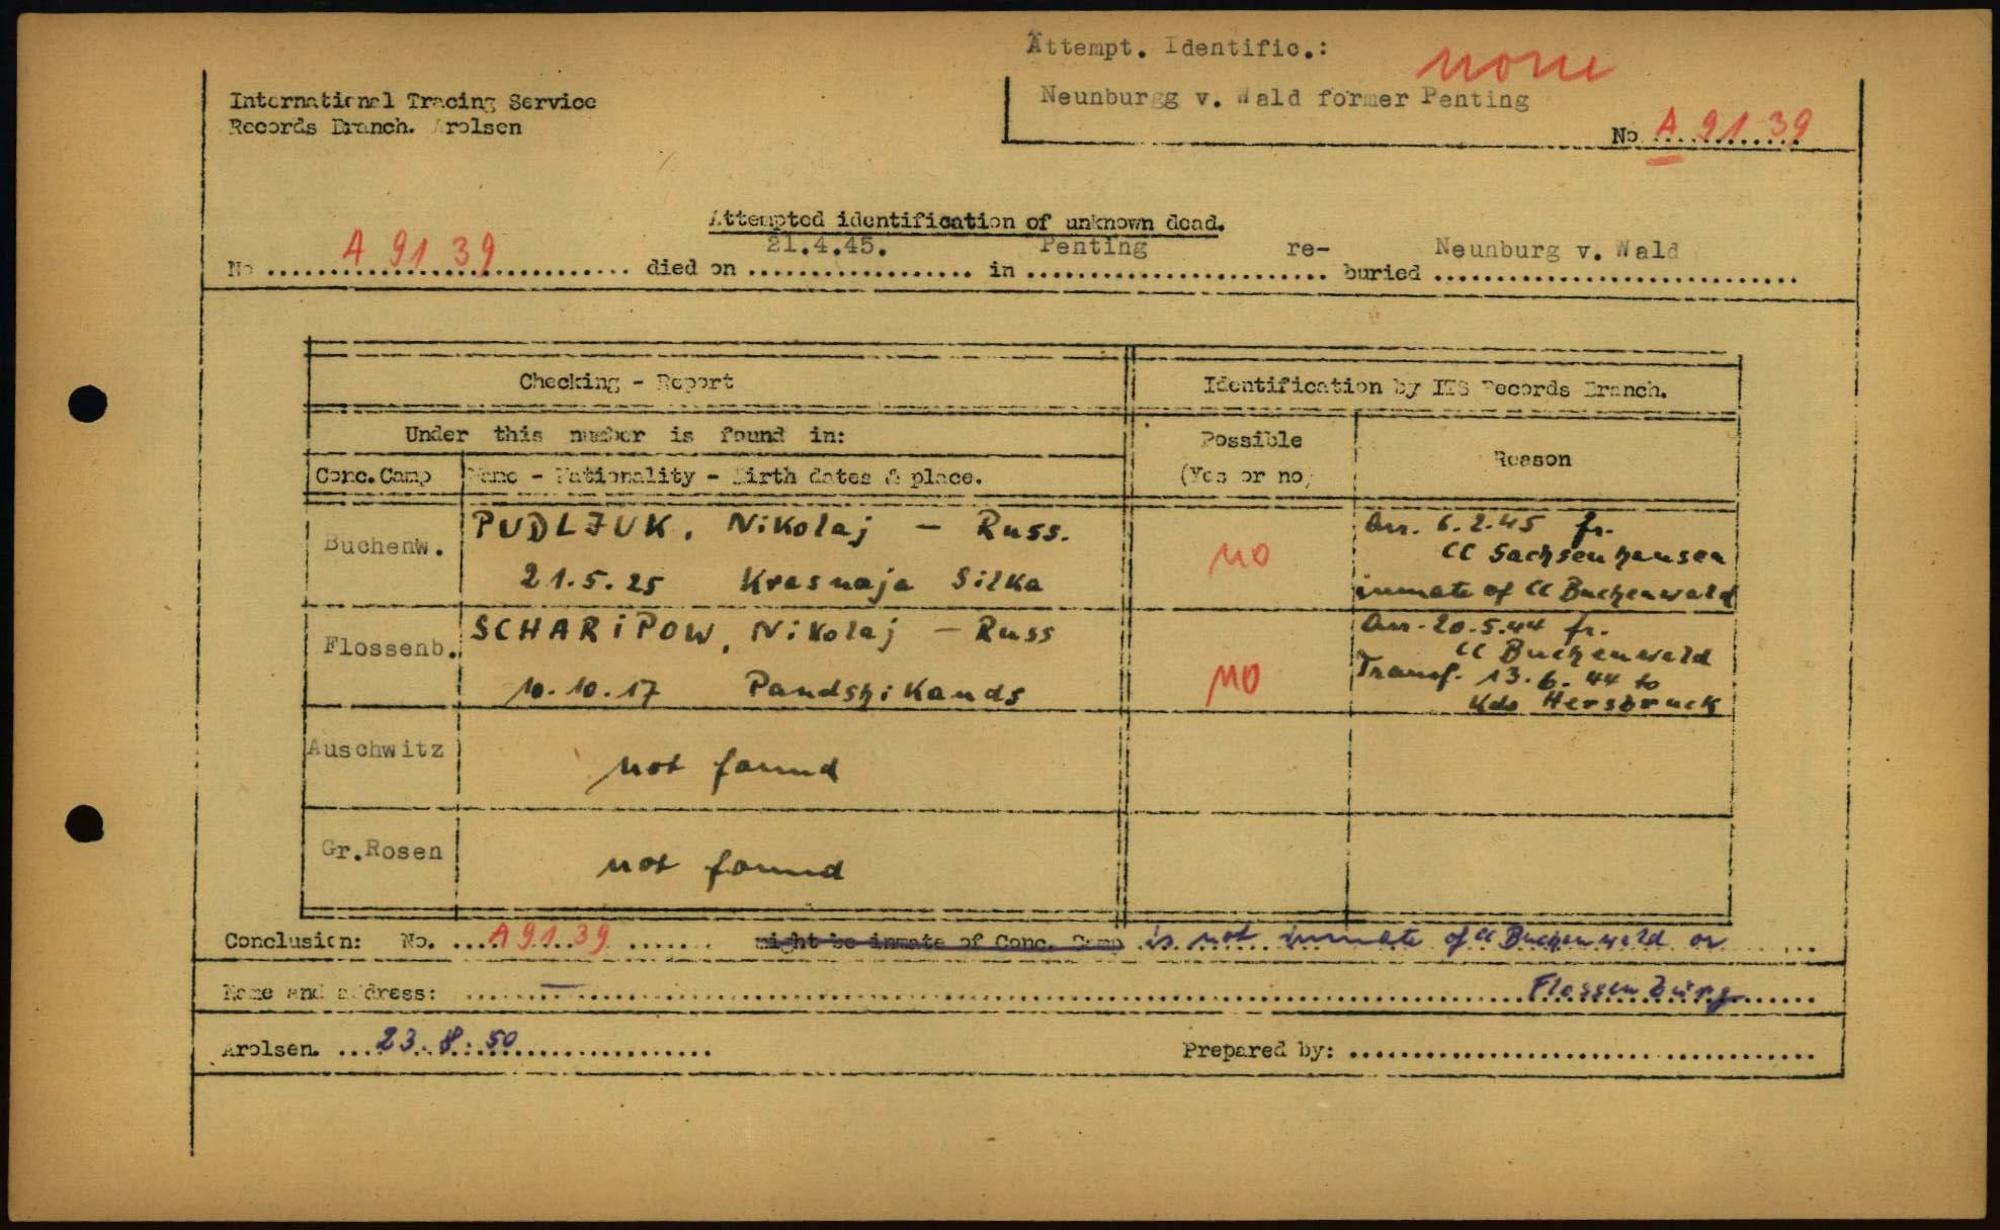 Attempt. Identific.:
none
International Tracing Service
Records Branch. Arolsen
Neunburgg v. Wald former Penting
No A 9139
Attempted identification of unknown dead.
No A 9139 died on 21.4.45. in Penting re-buried Neunburg v. Wald
Checking - Report
Identification by ITS Records Branch.
Under this number is found in:
Possible
(Yes or no)
Reason
Conc.Camp
Name - Nationality - Birth dates & place.
Buchenw.
PUDLJUK, Nikolaj - Russ.
21.5.25 Krasnaja Silka
no
Arr. 6.2.45 fr.
CC Sachsenhausen
inmate of CC Buchenwald
Flossenb.
SCHARiPOW, Nikolaj - Russ
10.10.17 Pandshikands
no
Arr. 20.5.44 fr.
CC Buchenwald
Transf. 13.6.44 to
Kdo Hersbruck
Auschwitz
not found
Gr.Rosen
not found
Conclusion: No. A 9139 might be inmate of Conc. Camp is not inmate of CC Buchenwald or
Name and address: — Flossenbürg
Arolsen. 23.8.50 Prepared by: